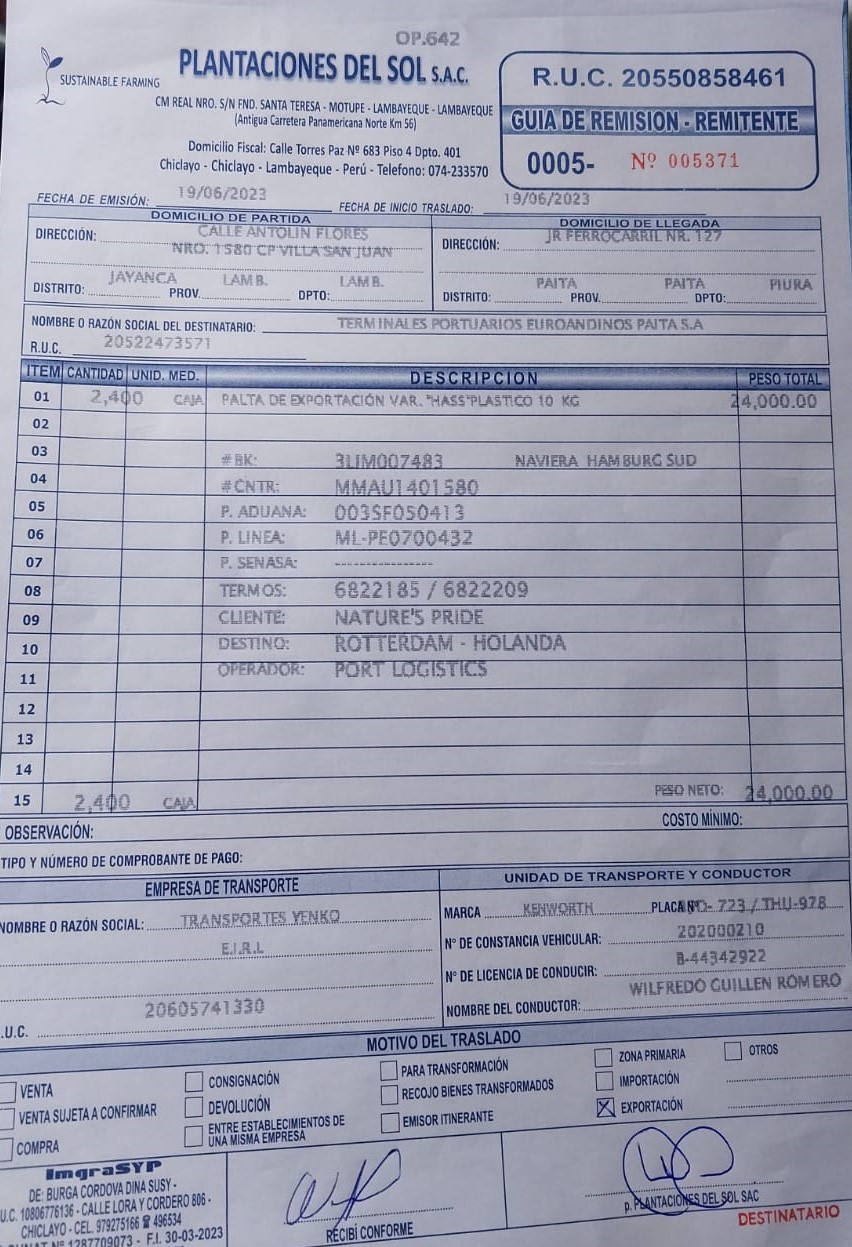 OP.642
SUSTAINABLE FARMING
PLANTACIONES DEL SOL S.A.C.
CM REAL NRO. S/N FND. SANTA TERESA - MOTUPE - LAMBAYEQUE - LAMBAYEQUE
(Antigua Carretera Panamericana Norte Km 56)
Domicilio Fiscal: Calle Torres Paz Nº 683 Piso 4 Dpto. 401
Chiclayo - Chiclayo - Lambayeque - Perú - Telefono: 074-233570
R.U.C. 20550858461
GUIA DE REMISION - REMITENTE
0005- Nº 005371
FECHA DE EMISIÓN: 19/06/2023 FECHA DE INICIO TRASLADO: 19/06/2023
DOMICILIO DE PARTIDA
DIRECCIÓN: CALLE ANTOLIN FLORES
NRO. 1580 CP VILLA SAN JUAN
JAYANCA LAMB. LAMB.
DISTRITO: PROV. DPTO:
DOMICILIO DE LLEGADA
DIRECCIÓN: JR FERROCARRIL NR. 127
PAITA PAITA PIURA
DISTRITO: PROV. DPTO:
NOMBRE O RAZÓN SOCIAL DEL DESTINATARIO: TERMINALES PORTUARIOS EUROANDINOS PAITA S.A
R.U.C. 20522473571
ITEM CANTIDAD UNID. MED. DESCRIPCION PESO TOTAL
01 2,400 CAJA PALTA DE EXPORTACIÓN VAR. "HASS"PLASTICO 10 KG 24,000.00
02
03 #BK: 3LIM007483 NAVIERA HAMBURG SUD
04 #CNTR: MMAU1401580
05 P. ADUANA: 003SF050413
06 P. LINEA: ML-PE0700432
07 P. SENASA: ----------------
08 TERMOS: 6822185 / 6822209
09 CLIENTE: NATURE'S PRIDE
10 DESTINO: ROTTERDAM - HOLANDA
11 OPERADOR: PORT LOGISTICS
12
13
14
15 2,400 CAJA PESO NETO: 24,000.00
OBSERVACIÓN: COSTO MÍNIMO:
TIPO Y NÚMERO DE COMPROBANTE DE PAGO:
EMPRESA DE TRANSPORTE
NOMBRE O RAZÓN SOCIAL: TRANSPORTES YENKO
E.I.R.L
.U.C. 20605741330
UNIDAD DE TRANSPORTE Y CONDUCTOR
MARCA KENWORTH PLACA 723 / THU-978
N° DE CONSTANCIA VEHICULAR: 202000210
N° DE LICENCIA DE CONDUCIR: B-44342922
NOMBRE DEL CONDUCTOR: WILFREDO GUILLEN ROMERO
MOTIVO DEL TRASLADO
VENTA
VENTA SUJETA A CONFIRMAR
COMPRA
CONSIGNACIÓN
DEVOLUCIÓN
ENTRE ESTABLECIMIENTOS DE
UNA MISMA EMPRESA
PARA TRANSFORMACIÓN
RECOJO BIENES TRANSFORMADOS
EMISOR ITINERANTE
ZONA PRIMARIA
IMPORTACIÓN
X EXPORTACIÓN
OTROS
ImgraSYP
DE: BURGA CORDOVA DINA SUSY -
U.C. 10806776136 - CALLE LORA Y CORDERO 806 -
CHICLAYO - CEL. 979275166 ☎ 496534
Nº 1287709073 - F.I. 30-03-2023
RECIBÍ CONFORME
p. PLANTACIONES DEL SOL SAC
DESTINATARIO